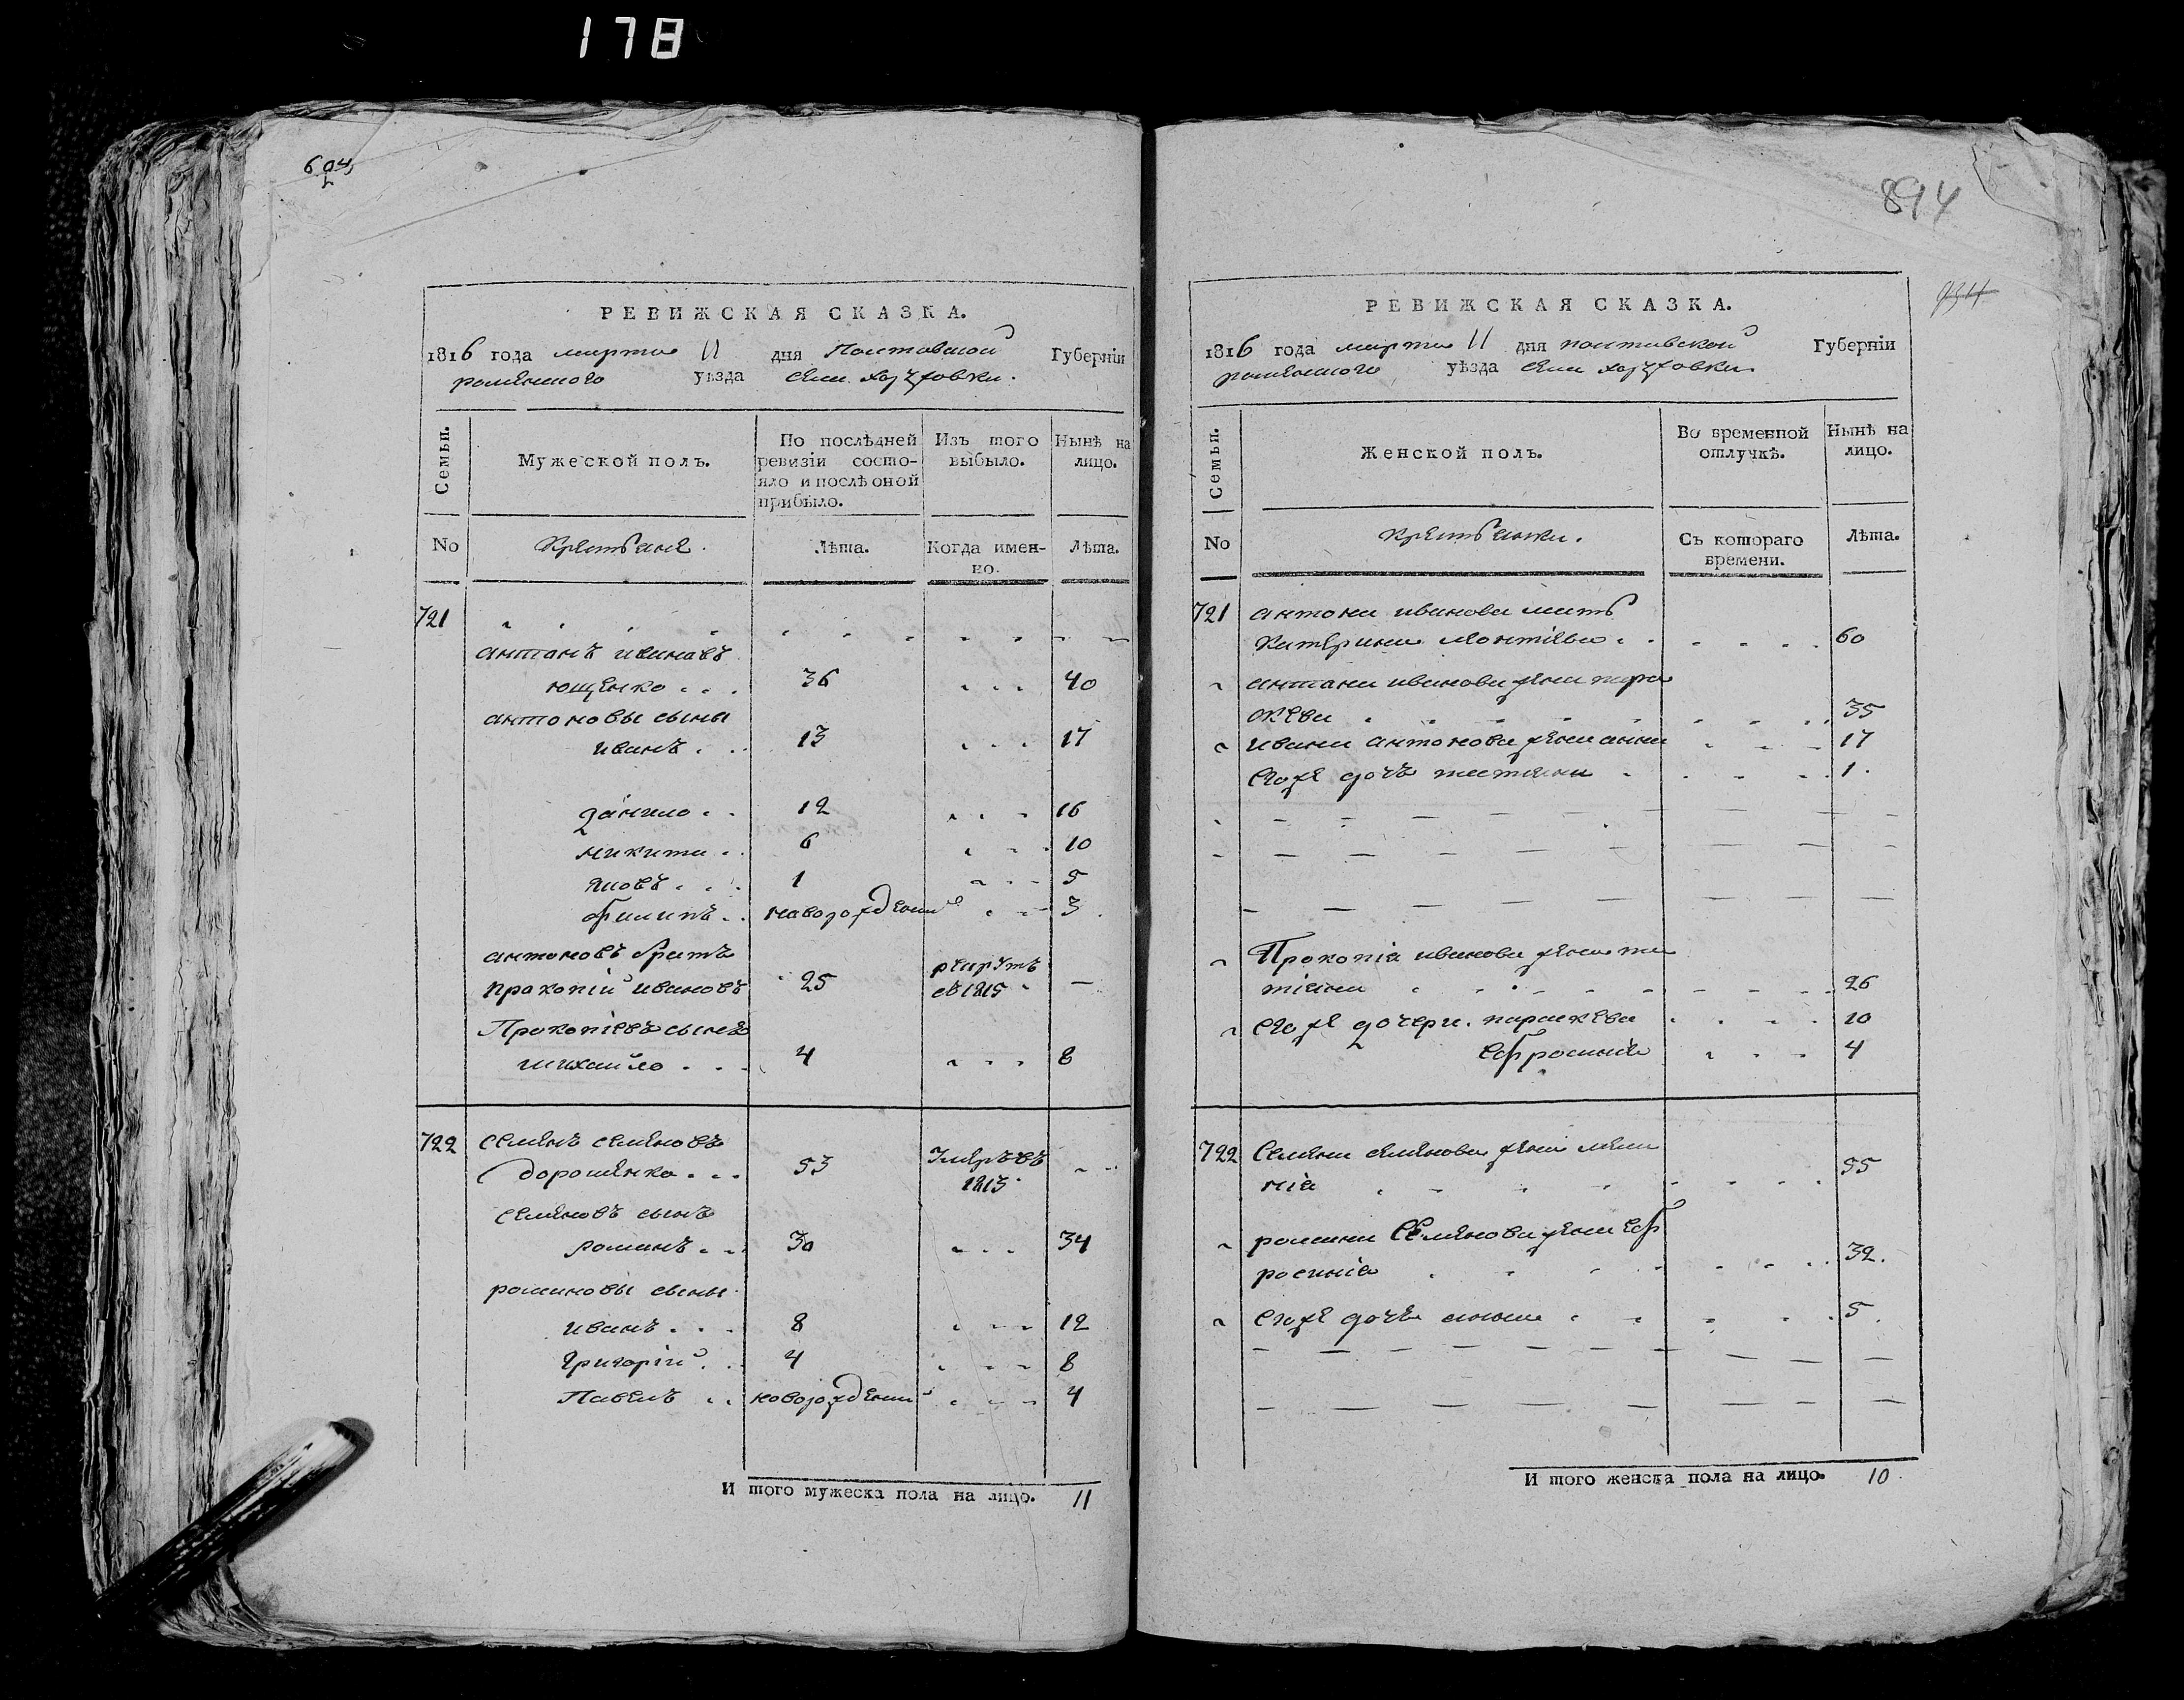 178
604
РЕВИЖСКАЯ СКАЗКА.
1816 года марта 11 дня Полтавской Губерніи
роменского уѣзда села
Семьи.
Мужеской полъ.
По послѣдней ревизіи состояло и послѣ оной прибыло.
Изъ того выбыло.
Нынѣ на лицо.
No
Крестьяне.
Лѣта.
Когда именно.
Лѣта.
721
антонъ ивановъ
ющенко 36 40
антоновы сыны
иванъ 13 17
данило 12 16
никита 6 10
яковъ 1 5
филипъ новорожденны 3
антоновъ братъ
прокопій ивановъ 25 рекрутъ въ 1815 —
Прокопіевъ сынъ
михайло 4 8
722 семенъ семеновъ
дорошенко 53 умре въ 1815
семеновъ сынъ
романъ 30 34
романовы сыны
иванъ 8 12
григорій 4 8
Павелъ новорожденны 4
И того мужеска пола на лицо. 11
894
934
РЕВИЖСКАЯ СКАЗКА.
1816 года марта 11 дня полтавской Губерніи
роменского уѣзда села
Семьи.
Женской полъ.
Во временной отлучкѣ.
Нынѣ на лицо.
No
Крестьянки.
Съ котораго времени.
Лѣта.
721 антона иванова мать
катерина 60
антона иванова жена пара
скева 35
ивана антонова жена анна 17
его же дочь татiяна 1.
Прокопіа иванова жена та
тіяна 26
его же дочери. параскева 10
ефросиніа 4
722 Семена семенова жена мела
ніа 55
романа Семенова жена еф
росиніа 32.
его же дочь 5
И того женска пола на лицо. 10.